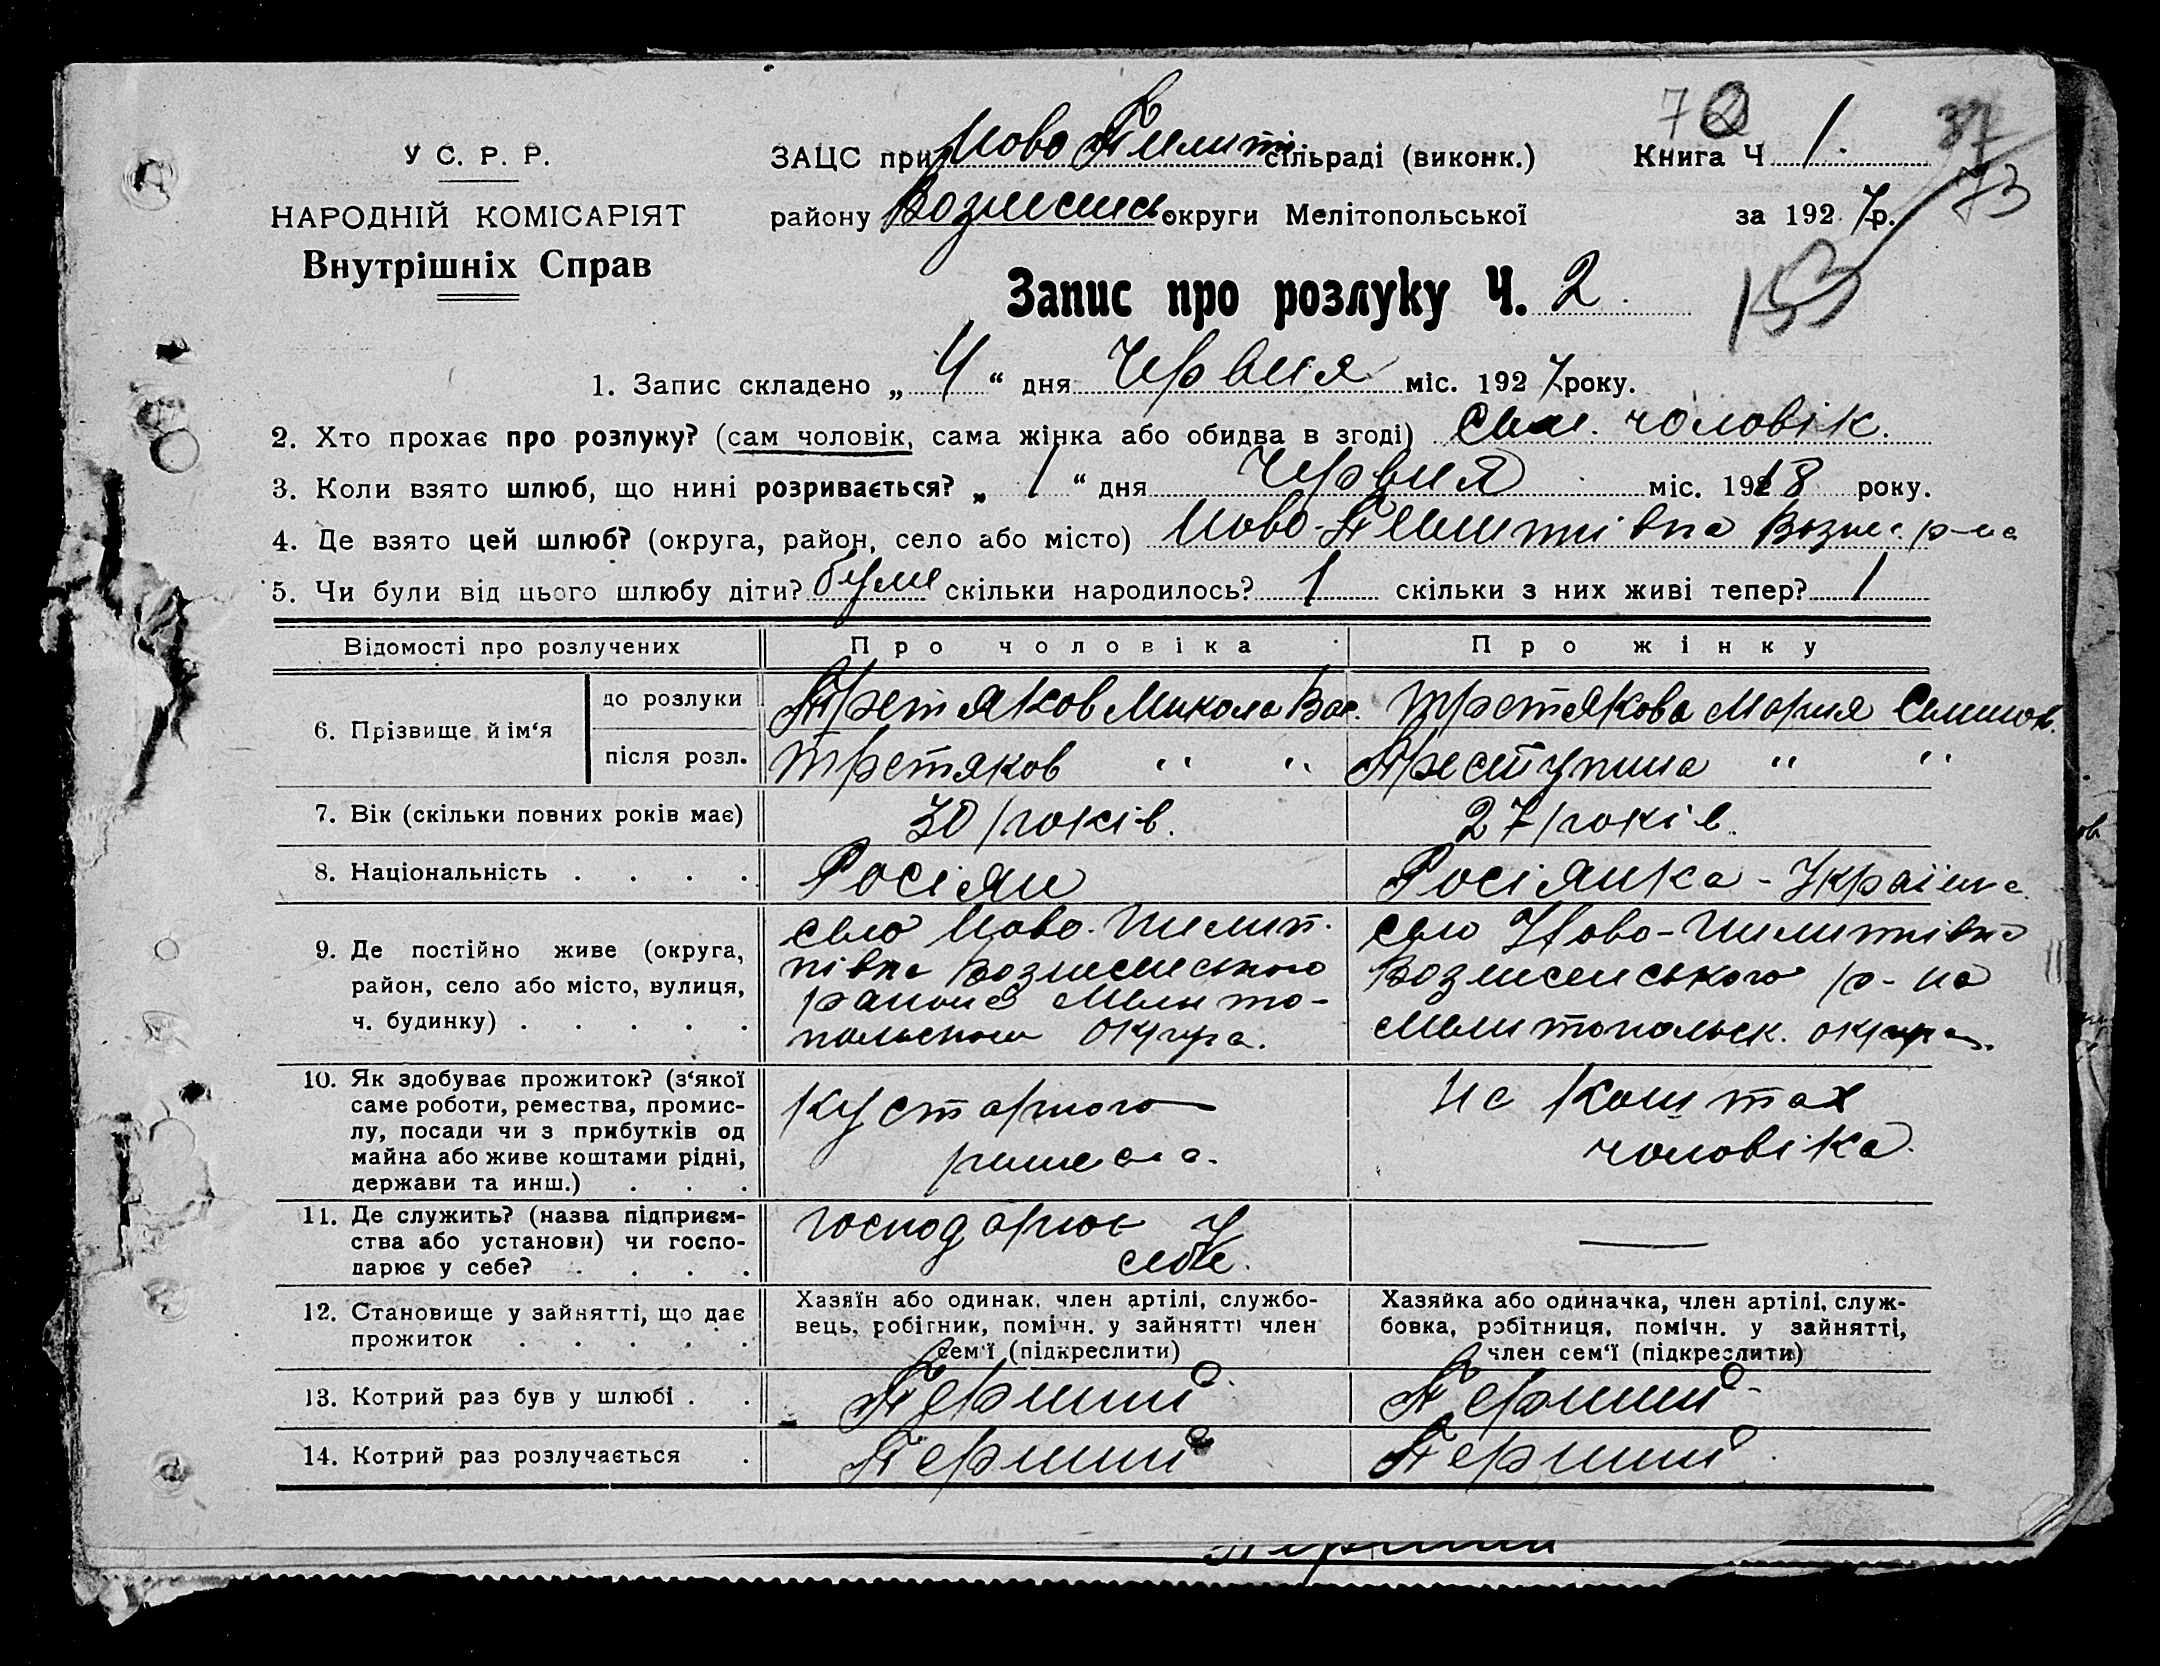 7
37
У С. Р. Р.
ЗАЦС при Ново Пилипп сільраді (виконк.) Книга Ч 1.
73
НАРОДНІЙ КОМІСАРІЯТ
району Вознесенсь округи Мелітопольської за 1927 р.
Внутрішніх Справ
153
Запис про розлуку Ч. 2
1. Запис складено „ 4 “ дня Червня міс. 1927 року.
2. Хто прохає про розлуку? (сам чоловік, сама жінка або обидва в згоді) Сам. чоловік.
3. Коли взято шлюб, що нині розривається? „ 1 “ дня Червня міс. 1918 року.
4. Де взято цей шлюб? (округа, район, село або місто) Ново-Пилиппівка Вознес. р-на
5. Чи були від цього шлюбу діти? були скільки народилось? 1 скільки з них живі тепер? 1
Відомості про розлучених Про чоловіка Про жінку
6. Прізвище й ім‘я
до розлуки Третяков Микола Вас. Третякова Мария Семенов.
після розл. Третяков " "
7. Вік (скільки повних років має) 30 років. 27 років.
8. Національність . . . . Росіян Росіянка - Україн
9. Де постійно живе (округа, район, село або місто, вулиця, ч. будинку) . . . . .
село Ново-Пилип.
півка Вознесенського
района Мелито-
польського округа.
село Ново-Пилиппівка
Вознесенського р-на
Мелитопольск. округа.
10. Як здобуває прожиток? (з‘якої
саме роботи, ремества, промис-
лу, посади чи з прибутків од
майна або живе коштами рідні,
держави та инш.) . . .
кустарного
ремесла.
На коштах
чоловіка.
11. Де служить? (назва підприєм-
ства або установи) чи госпо-
дарює у себе? . . . .
господарює у
себе.
—
12. Становище у зайнятті, що дає
прожиток . . . . .
Хазяїн або одинак, член артілі, службо-
вець, робітник, помічн. у зайнятті член
сем‘ї (підкреслити)
Хазяйка або одиначка, член артілі, служ-
бовка, робітниця, помічн. у зайнятті,
член сем‘ї (підкреслити)
13. Котрий раз був у шлюбі . . Перший Перший
14. Котрий раз розлучається . Перший Перший